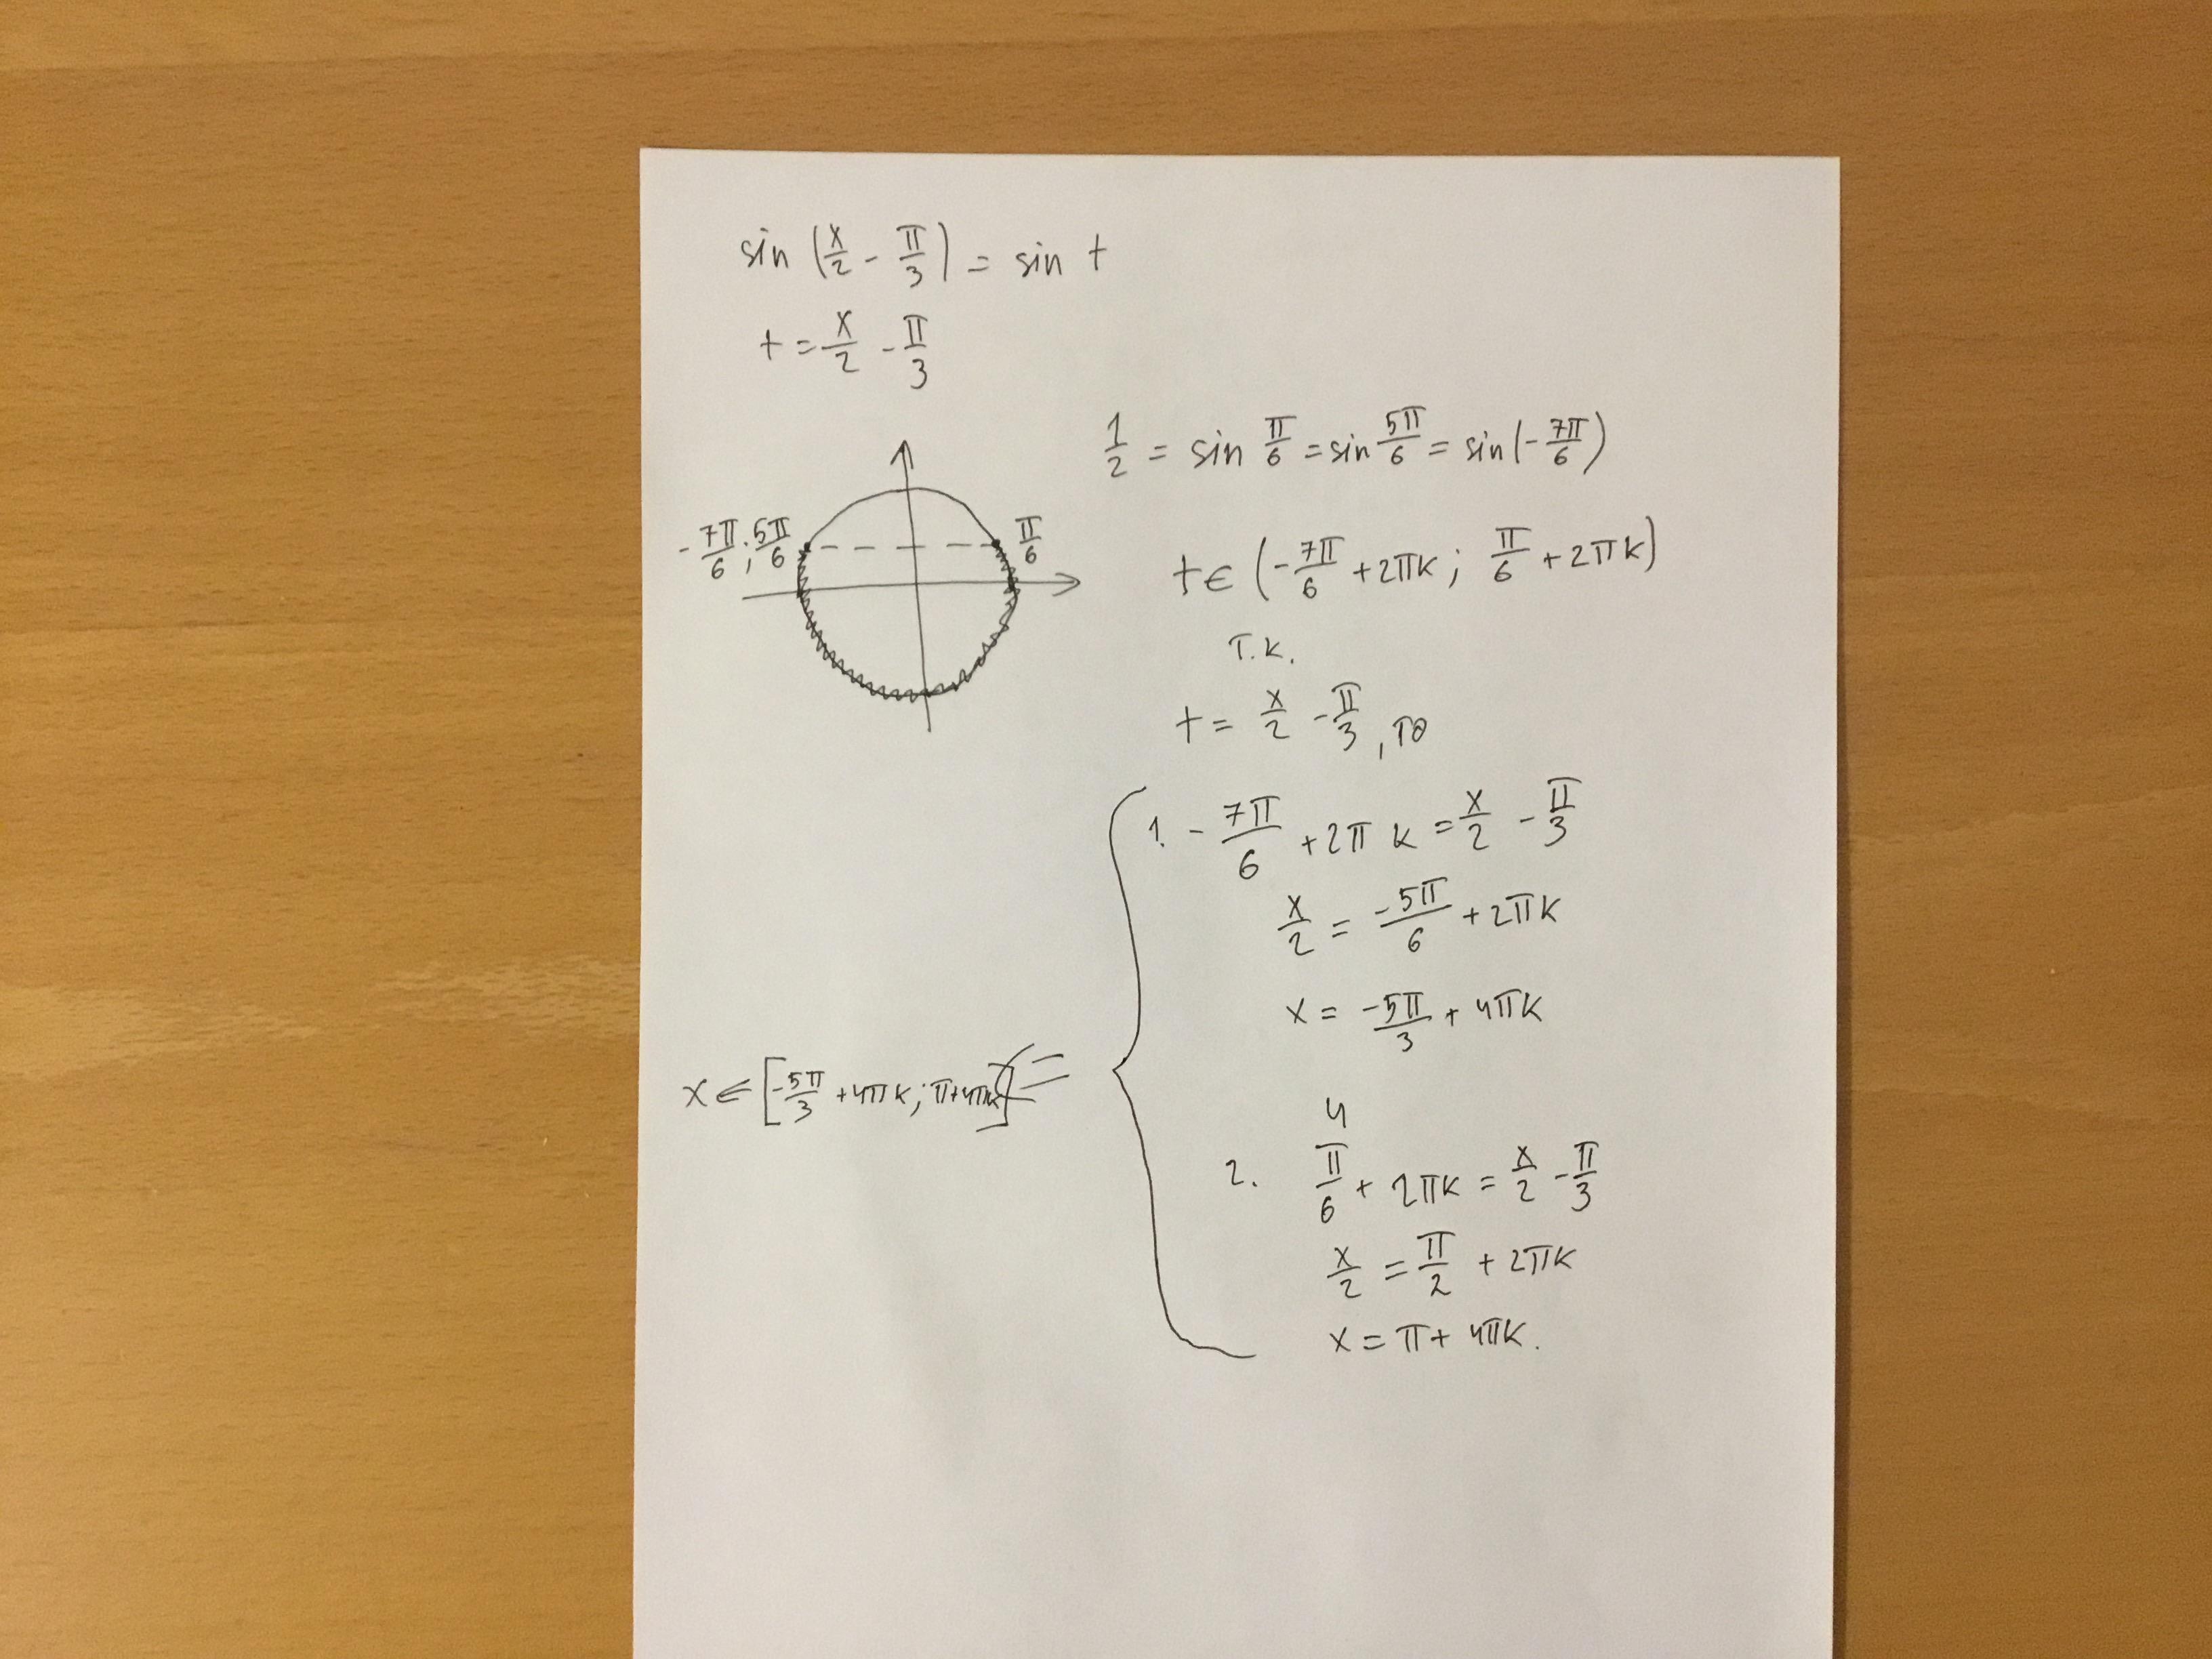 sin (x/2 - π/3) = sin t
t = x/2 - π/3
1/2 = sin π/6 = sin 5π/6 = sin(-7π/6)
-7π/6; 5π/6
π/6
t ∈ (-7π/6 + 2πk; π/6 + 2πk)
т.к.
t = x/2 - π/3, то
1. -7π/6 + 2πk = x/2 - π/3
x/2 = -5π/6 + 2πk
x = -5π/3 + 4πk
x ∈ [-5π/3 + 4πk; π+4πk] ⇐
и
2. π/6 + 2πk = x/2 - π/3
x/2 = π/2 + 2πk
x = π + 4πk.